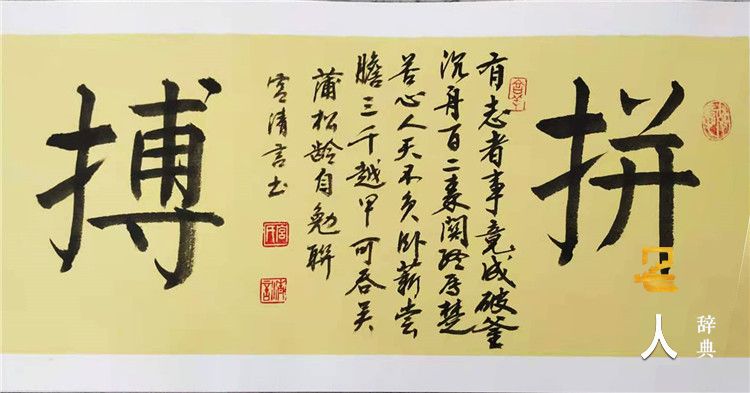 拼
有志者事竟成破釜
沉舟百二秦関终属楚
苦心人天不负卧薪尝
膽三千越甲可吞吴
蒲松龄自勉聯
宫清言书
搏
宫氏
清言
名人
辞典